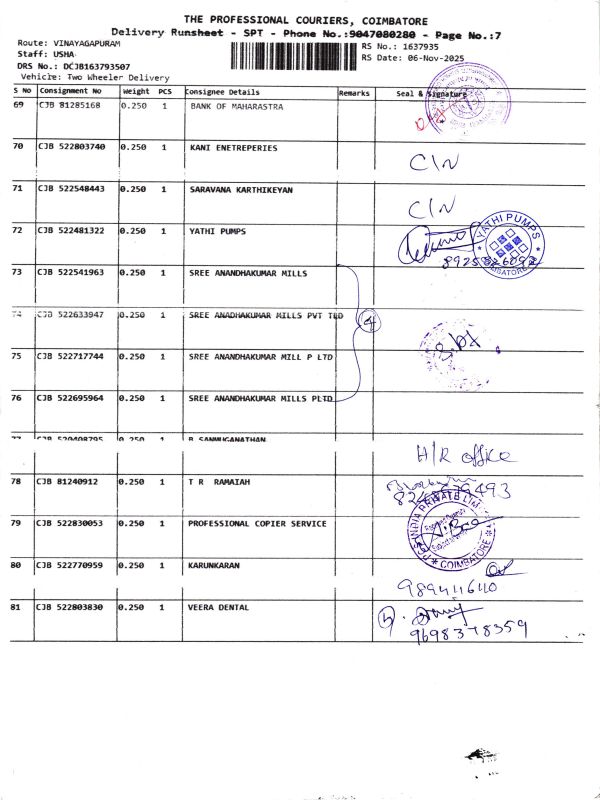 THE PROFESSIONAL COURIERS, COIMBATORE
Delivery Runsheet - SPT - Phone No.:9047080280 - Page No.:7
Route: VINAYAGAPURAM
RS No.: 1637935
Staff: USHA
RS Date: 06-Nov-2025
DRS No.: DCJB163793507
Vehicle: Two Wheeler Delivery
S No Consignment No Weight PCS Consignee Details Remarks Seal & Signature
69 CJB 81285168 0.250 1 BANK OF MAHARASTRA
70 CJB 522803740 0.250 1 KANI ENETREPERIES
C/N
71 CJB 522548443 0.250 1 SARAVANA KARTHIKEYAN
C/N
72 CJB 522481322 0.250 1 YATHI PUMPS
YATHI PUMPS
COIMBATORE
73 CJB 522541963 0.250 1 SREE ANANDHAKUMAR MILLS
74 CJB 522633947 0.250 1 SREE ANADHAKUMAR MILLS PVT TLD
4
75 CJB 522717744 0.250 1 SREE ANANDHAKUMAR MILL P LTD
76 CJB 522695964 0.250 1 SREE ANANDHAKUMAR MILLS PLTD
77 CJB 520408795 0.250 1 B SANMUGANATHAN
H/R office
78 CJB 81240912 0.250 1 T R RAMAIAH
79 CJB 522830053 0.250 1 PROFESSIONAL COPIER SERVICE
INDIA PRIVATE LIMITED
COIMBATORE
80 CJB 522770959 0.250 1 KARUNKARAN
81 CJB 522803830 0.250 1 VEERA DENTAL